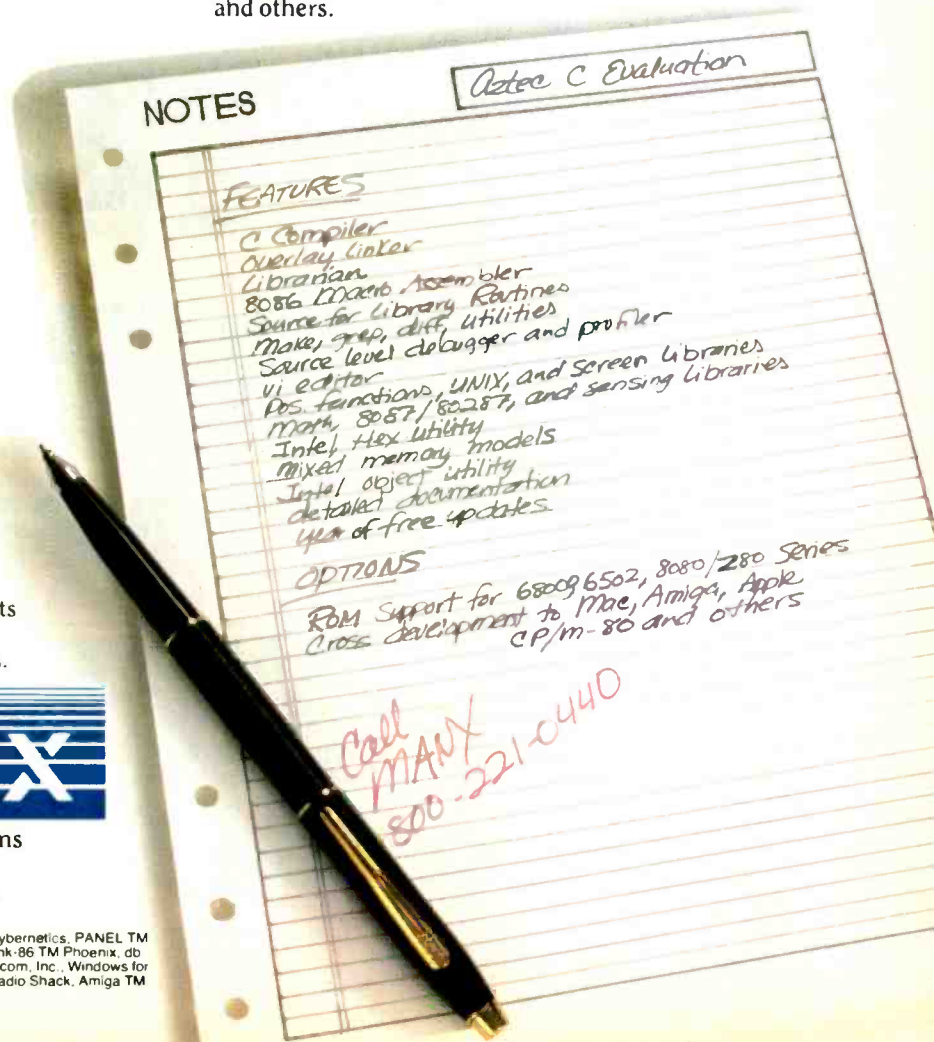 and others.
NOTES
Aztec C Evaluation
FEATURES
C Compiler
Overlay Linker
Librarian
8086 Macro Assembler
Source for Library Routines
Make, grep, diff, utilities
Source level debugger and profiler
vi editor
Dos. functions, UNIX, and screen Libraries
math, 8087/80287, and sensing Libraries
Intel Hex Utility
mixed memory models
Intel object utility
detailed documentation
year of free updates
OPTIONS
ROM Support for 68009 6502, 8080/Z80 Series
Cross development to Mac, Amiga, Apple
CP/m-80 and others
Call
MANX
800-221-0440
ts
X
ns
ybernetics, PANEL TM
nk-86 TM Phoenix, db
com, Inc., Windows for
adio Shack, Amiga TM